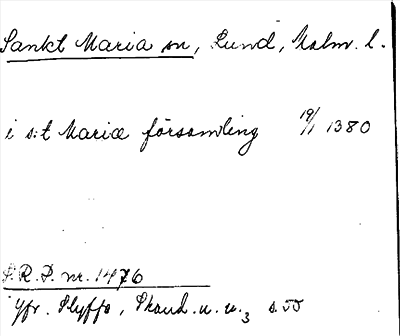 Sankt Maria sn, Lund, Malm. l.
i s:t Mariæ församling 19/1 1380
S.R.P. nr. 1476
Yfr. Styffe, Skand. u. u.3 s. 55